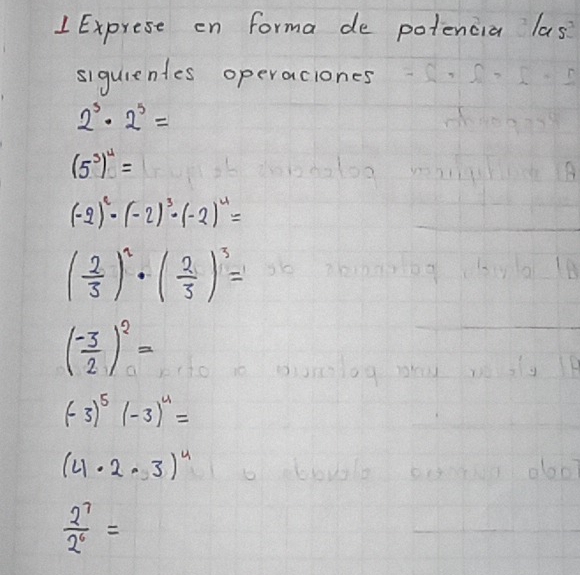 1 Exprese en forma de potencia las
siguientes operaciones
2³ · 2⁵ =
(5³)⁴ =
(-2)² · (-2)³ · (-2)⁴ =
(2/3)² · (2/3)³ =
(-3/2)² =
(-3)⁵ (-3)⁴ =
(4 · 2 · 3)⁴
2⁷/2⁶ =